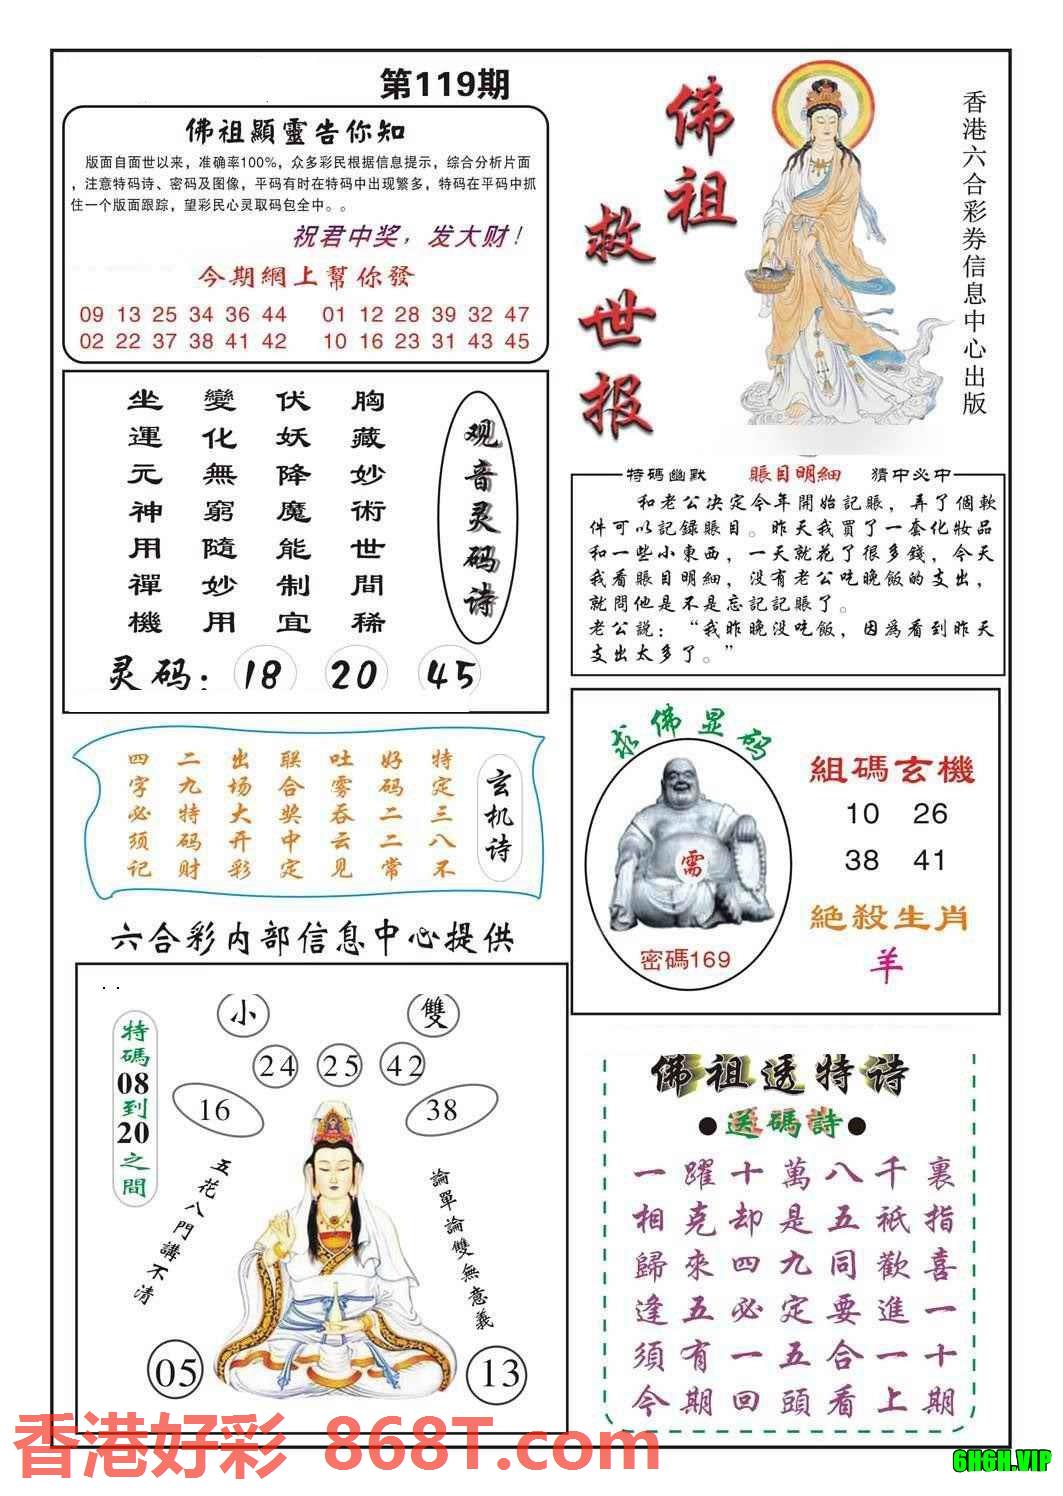 第119期
佛祖顯靈告你知
版面自面世以来，准确率100%，众多彩民根据信息提示，综合分析片面
，注意特码诗、密码及图像，平码有时在特码中出现繁多，特码在平码中抓
住一个版面跟踪，望彩民心灵取码包全中。。
祝君中奖，发大财！
今期網上幫你發
09 13 25 34 36 44 01 12 28 39 32 47
02 22 37 38 41 42 10 16 23 31 43 45
佛祖
救世报
香港六合彩券信息中心出版
观音灵码诗
胸藏妙術世間稀
伏妖降魔能制宜
變化無窮隨妙用
坐運元神用禪機
灵码：18 20 45
特碼幽默 賬目明細 猜中必中
和老公决定今年開始記賬，弄了個軟
件可以記錄賬目。昨天我買了一套化妝品
和一些小東西，一天就花了很多錢，今天
我看賬目明細，没有老公吃晚飯的支出，
就問他是不是忘記記賬了。
老公説：“我昨晚没吃飯，因爲看到昨天
支出太多了。”
玄机诗
特定三八不
好码二二常
吐雾吞云见
联合奖中定
出场大开彩
二九特码财
四字必须记
求佛显码
需
密碼169
組碼玄機
10 26
38 41
絕殺生肖
羊
六合彩内部信息中心提供
小 雙
24 25 42
16 38
特碼08到20之間
五花八門講不清
論單論雙無意義
05 13
佛祖透特诗
●送碼詩●
一躍十萬八千裏
相克却是五祇指
歸來四九同歡喜
逢五必定要進一
須有一五合一十
今期回頭看上期
香港好彩 868T.com
6H6H.VIP